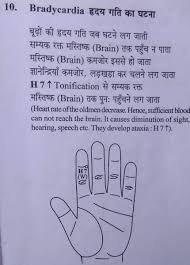 10. Bradycardia हृदय गति का घटना
बूढ़ों की हृदय गति जब घटने लग जाती
सम्यक रक्त मस्तिष्क (Brain) तक पहुँच न पाता
मस्तिष्क (Brain) कमजोर इससे हो जाता
ज्ञानेन्द्रियाँ कमजोर, लड़खड़ा कर चलने लग जाता
H 7 ↑ Tonification से सम्यक रक्त
मस्तिष्क (Brain) तक पुनः पहुँचने लग जाता
(Heart rate of the oldmen decrease. Hence, sufficient blood
can not reach the brain. It causes diminution of sight,
hearing, speech etc. They develop ataxia : H 7 ↑).
H7
(W)